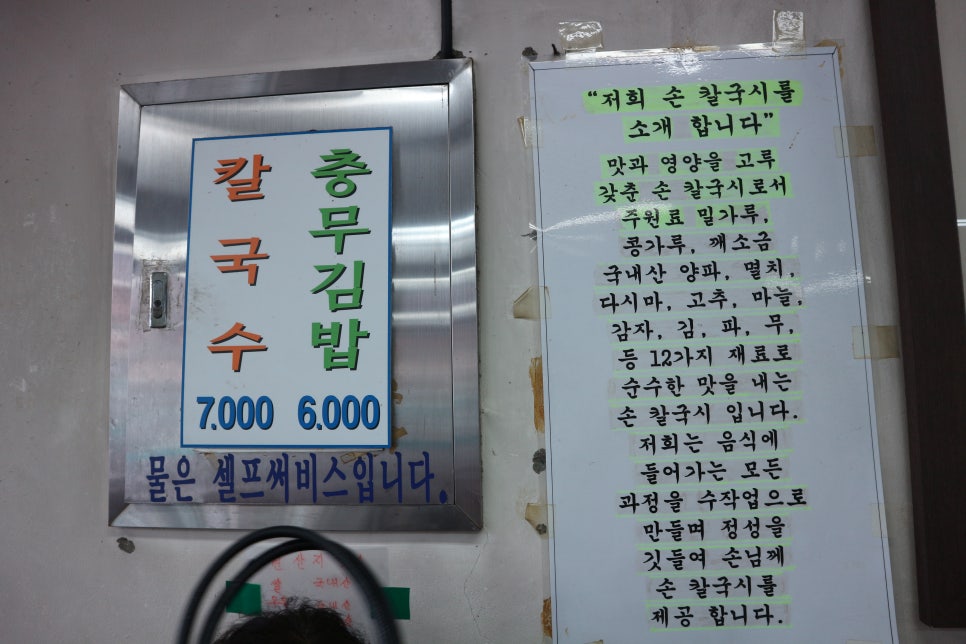 칼국수
충무김밥
7.000 6.000
물은 셀프써비스입니다.
"저희 손 칼국시를
소개 합니다"
맛과 영양을 고루
갖춘 손 칼국시로서
주원료 밀가루,
콩가루, 깨소금
국내산 양파, 멸치,
다시마, 고추, 마늘,
감자, 김, 파, 무,
등 12가지 재료로
순수한 맛을 내는
손 칼국시 입니다.
저희는 음식에
들어가는 모든
과정을 수작업으로
만들며 정성을
깃들여 손님께
손 칼국시를
제공 합니다.
원산지
쌀 국내산